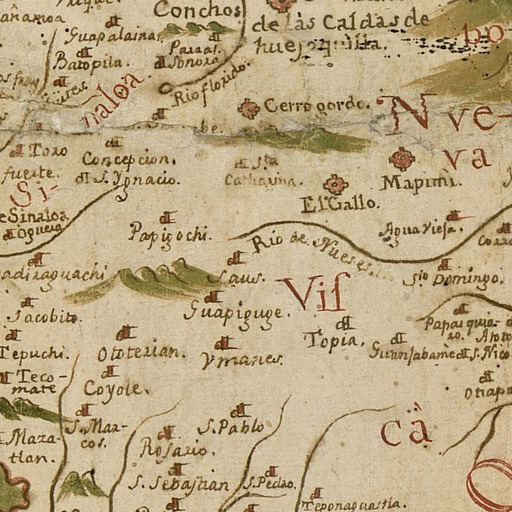 Conchos
de las Caldas de
huejoquilla.
Guapalaina
Batopila.
Parral
Sonora
Rio florido.
Cerro gordo.
Nve-
va
naloa
Toro
fuerte.
Concepcion.
S. Ygnacio.
Sta
Catharina.
Mapimi.
El Gallo.
Si-
Sinaloa
Papigochi.
Rio de Nueses
Agua Viefa.
S.to Domingo.
Saus.
Vis
Jacobito.
Guapiguge.
Topia.
Papasquia
ro.
Tepuchi.
Ototeñan.
Ymanes.
Guanfabame
S. Nico
Teco-
mate
Coyole.
Otiapa
S. Mar-
cos.
S. Pablo
cà
Maza-
tlan.
Rosario.
S. Sebastian
S. Pedro.
Teponaguastla.